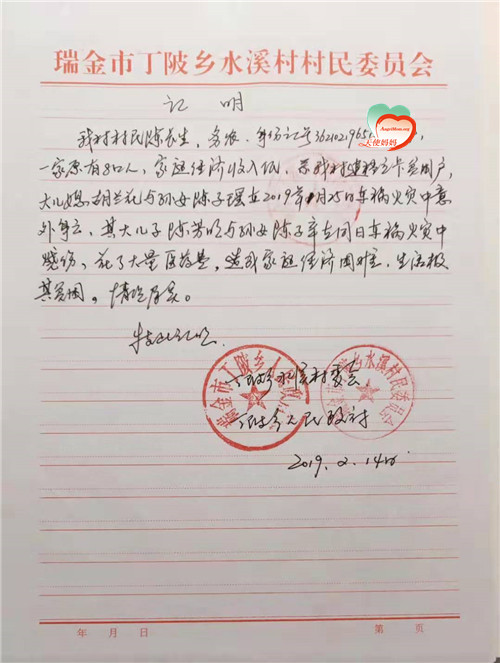 瑞金市丁陂乡水溪村村民委员会
证 明
我村村民陈长生，务农，身份证号3621021965
Angelmom.org
天使妈妈
一家原有8口人，家庭经济收入低，系我村建档立卡贫困户，
大儿媳胡兰花与孙女陈子瑾在2019年1月25日车祸火灾中意
外身亡，其大儿子陈芳明与孙女陈子辛在同日车祸火灾中
烧伤，花了大量医药费，造成家庭经济困难，生活极
其贫困，情况属实。
特此证明
丁陂乡水溪村委会
丁陂乡人民政府
2019.2.14日
瑞金市丁陂乡人民政府
丁陂乡水溪村村民委员会
年 月 日
第 页